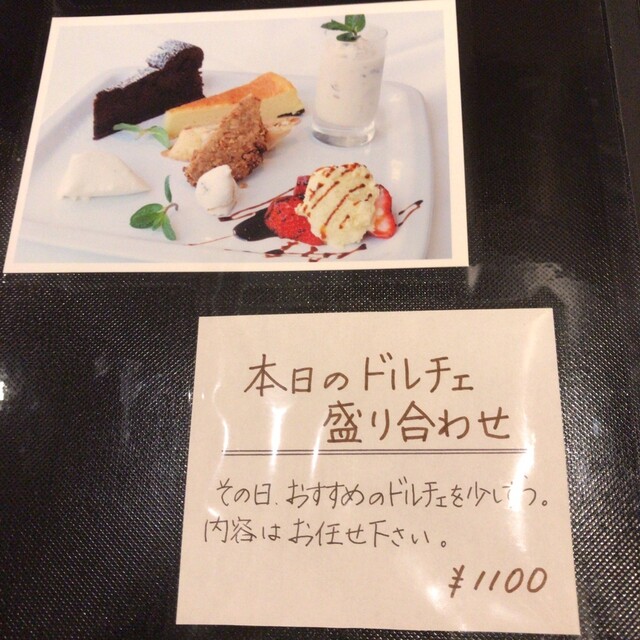 本日のドルチェ
盛り合わせ
その日、おすすめのドルチェを少しずつ。
内容はお任せ下さい。
¥1100